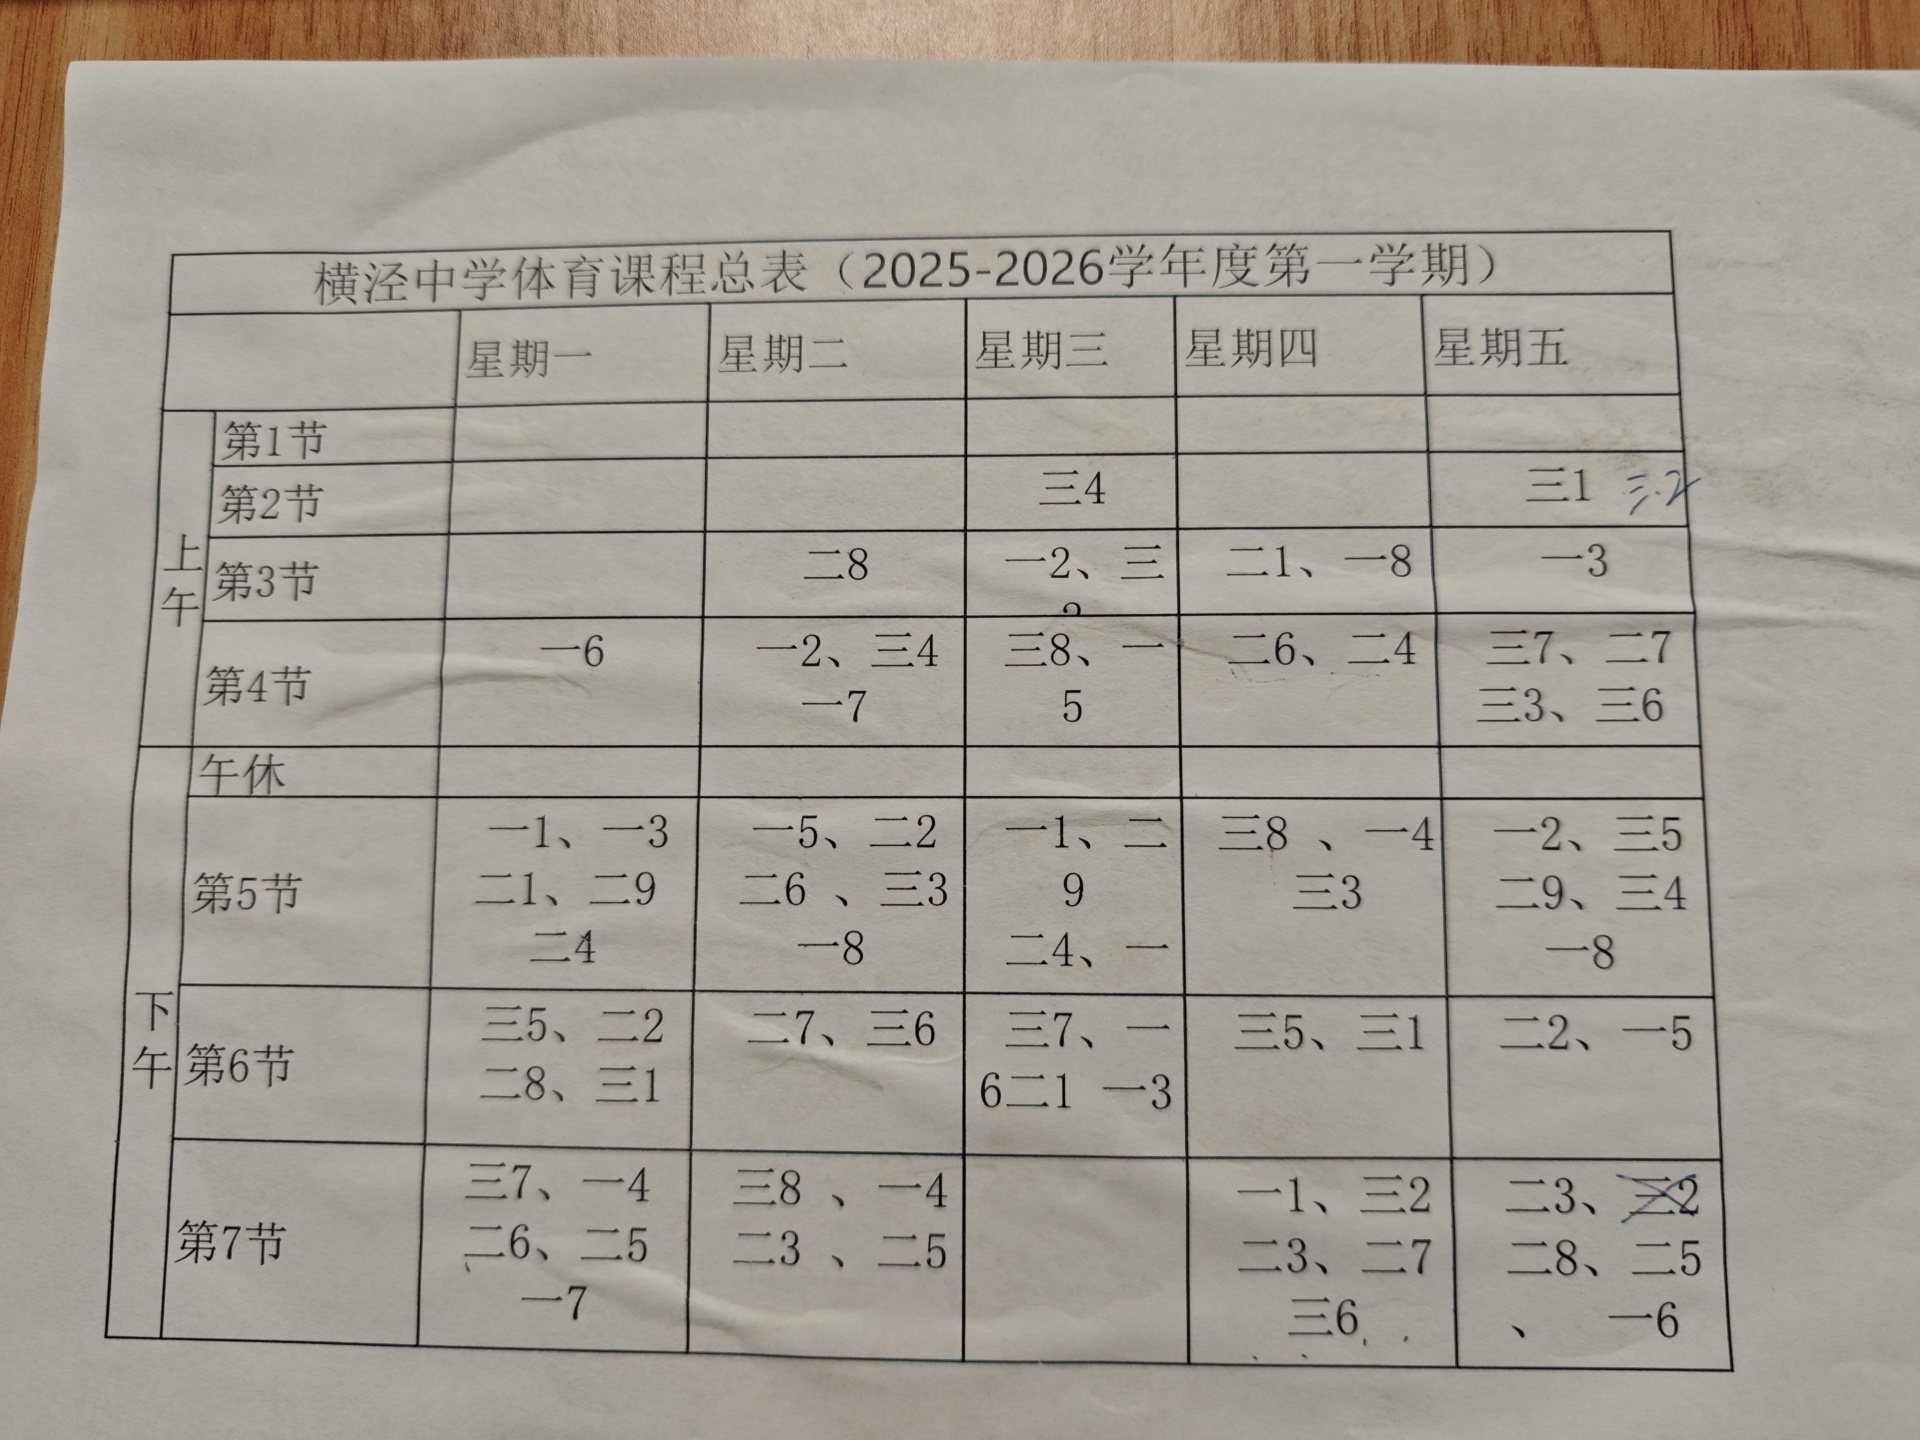 横泾中学体育课程总表（2025-2026学年度第一学期）
星期一 星期二 星期三 星期四 星期五
上午
第1节
第2节 三4 三1 三.2
第3节 二8 一2、三 二1、一8 一3
第4节 一6 一2、三4 三8、一 二6、二4 三7、二7
一7 5 三3、三6
下午
午休
第5节 一1、一3 一5、二2 一1、二 三8 、一4 一2、三5
二1、二9 二6 、三3 9 三3 二9、三4
二4 一8 二4、一 一8
第6节 三5、二2 二7、三6 三7、一 三5、三1 二2、一5
二8、三1 6二1 一3
第7节 三7、一4 三8 、一4 一1、三2 二3、三2
二6、二5 二3 、二5 二3、二7 二8、二5
一7 三6 、 一6